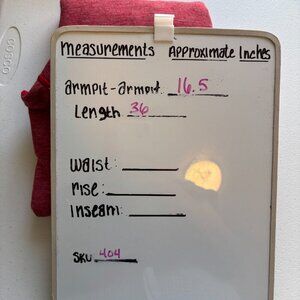 measurements Approximate Inches
armpit-armpit 16.5
Length 36
waist:
rise:
Inseam:
SKU 404